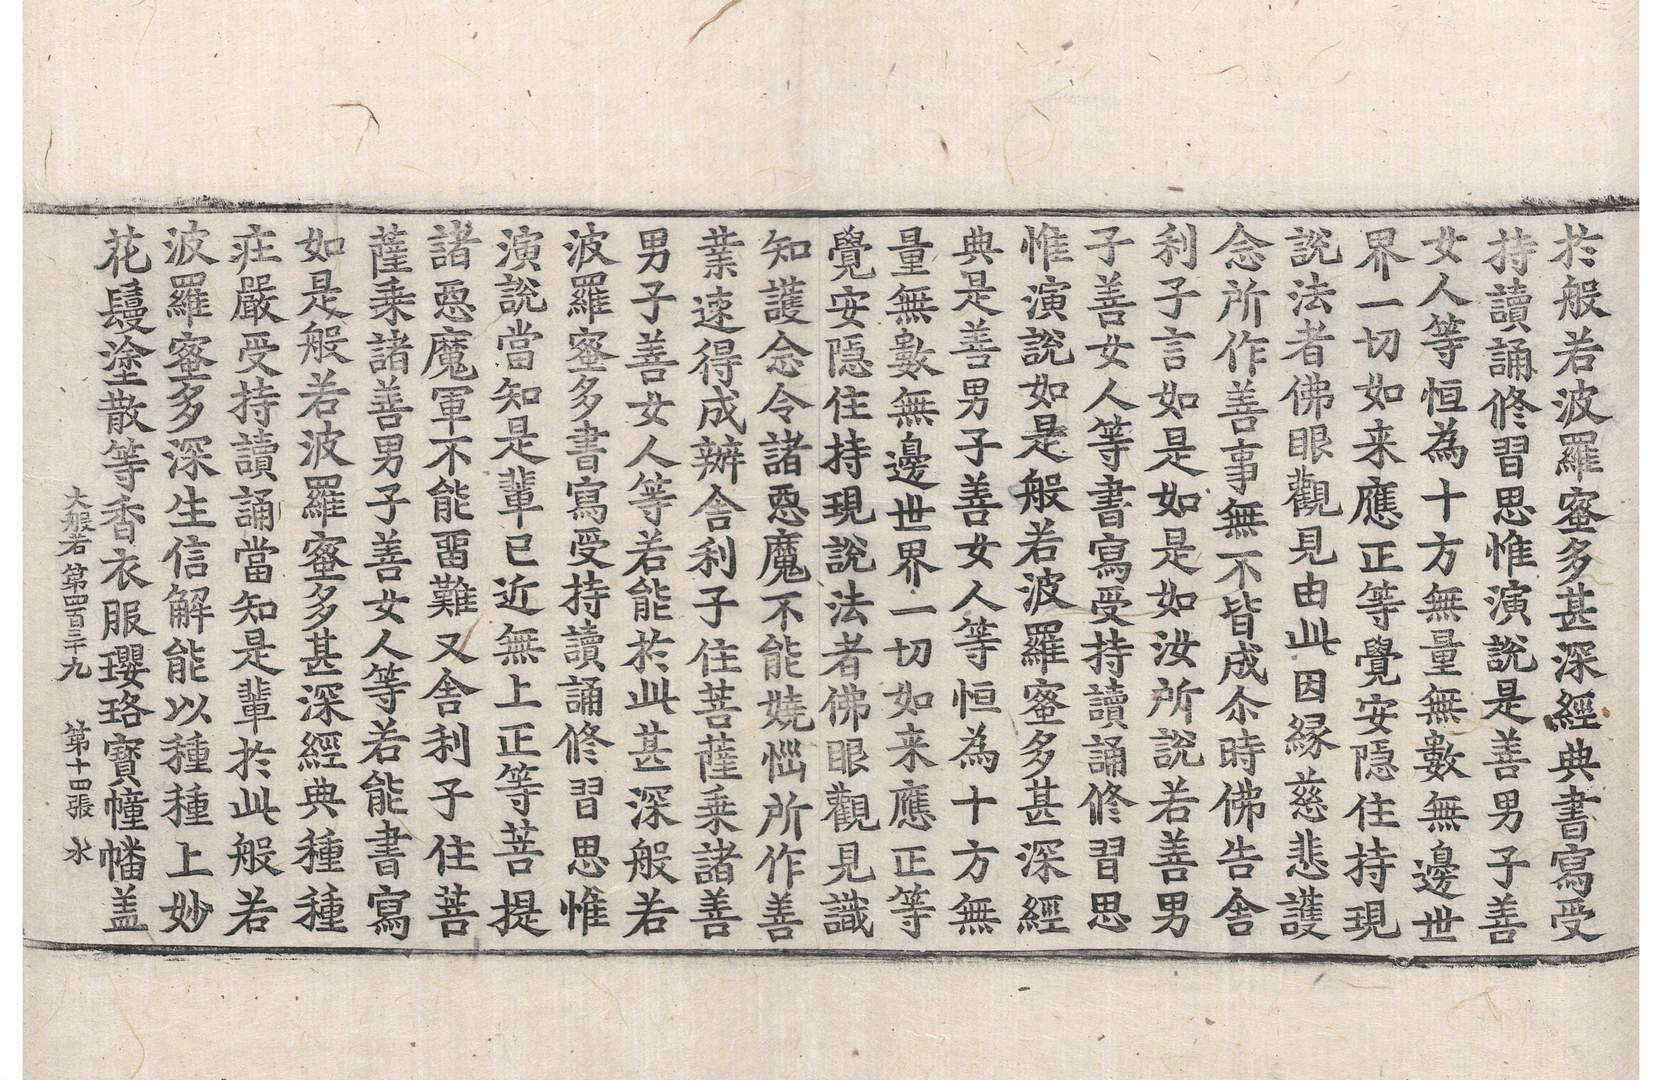 於般若波羅蜜多甚深經典書寫受
持讀誦修習思惟演說是善男子善
女人等恒為十方無量無數無邊世
界一切如来應正等覺安隱住持現
說法者佛眼觀見由此因緣慈悲護
念所作善事無不皆成尒時佛告舎
利子言如是如是如汝所說若善男
子善女人等書寫受持讀誦修習思
惟演說如是般若波羅蜜多甚深經
典是善男子善女人等恒為十方無
量無數無邊世界一切如来應正等
覺安隱住持現說法者佛眼觀見識
知護念令諸惡魔不能嬈惱所作善
業速得成辦舎利子住菩薩乗諸善
男子善女人等若能於此甚深般若
波羅蜜多書寫受持讀誦修習思惟
演說當知是輩已近無上正等菩提
諸惡魔軍不能留難又舎利子住菩
薩乗諸善男子善女人等若能書寫
如是般若波羅蜜多甚深經典種種
莊嚴受持讀誦當知是輩於此般若
波羅蜜多深生信解能以種種上妙
花鬘塗散等香衣服瓔珞寶幢幡盖
大般若第四百三十九 第十四張 氷